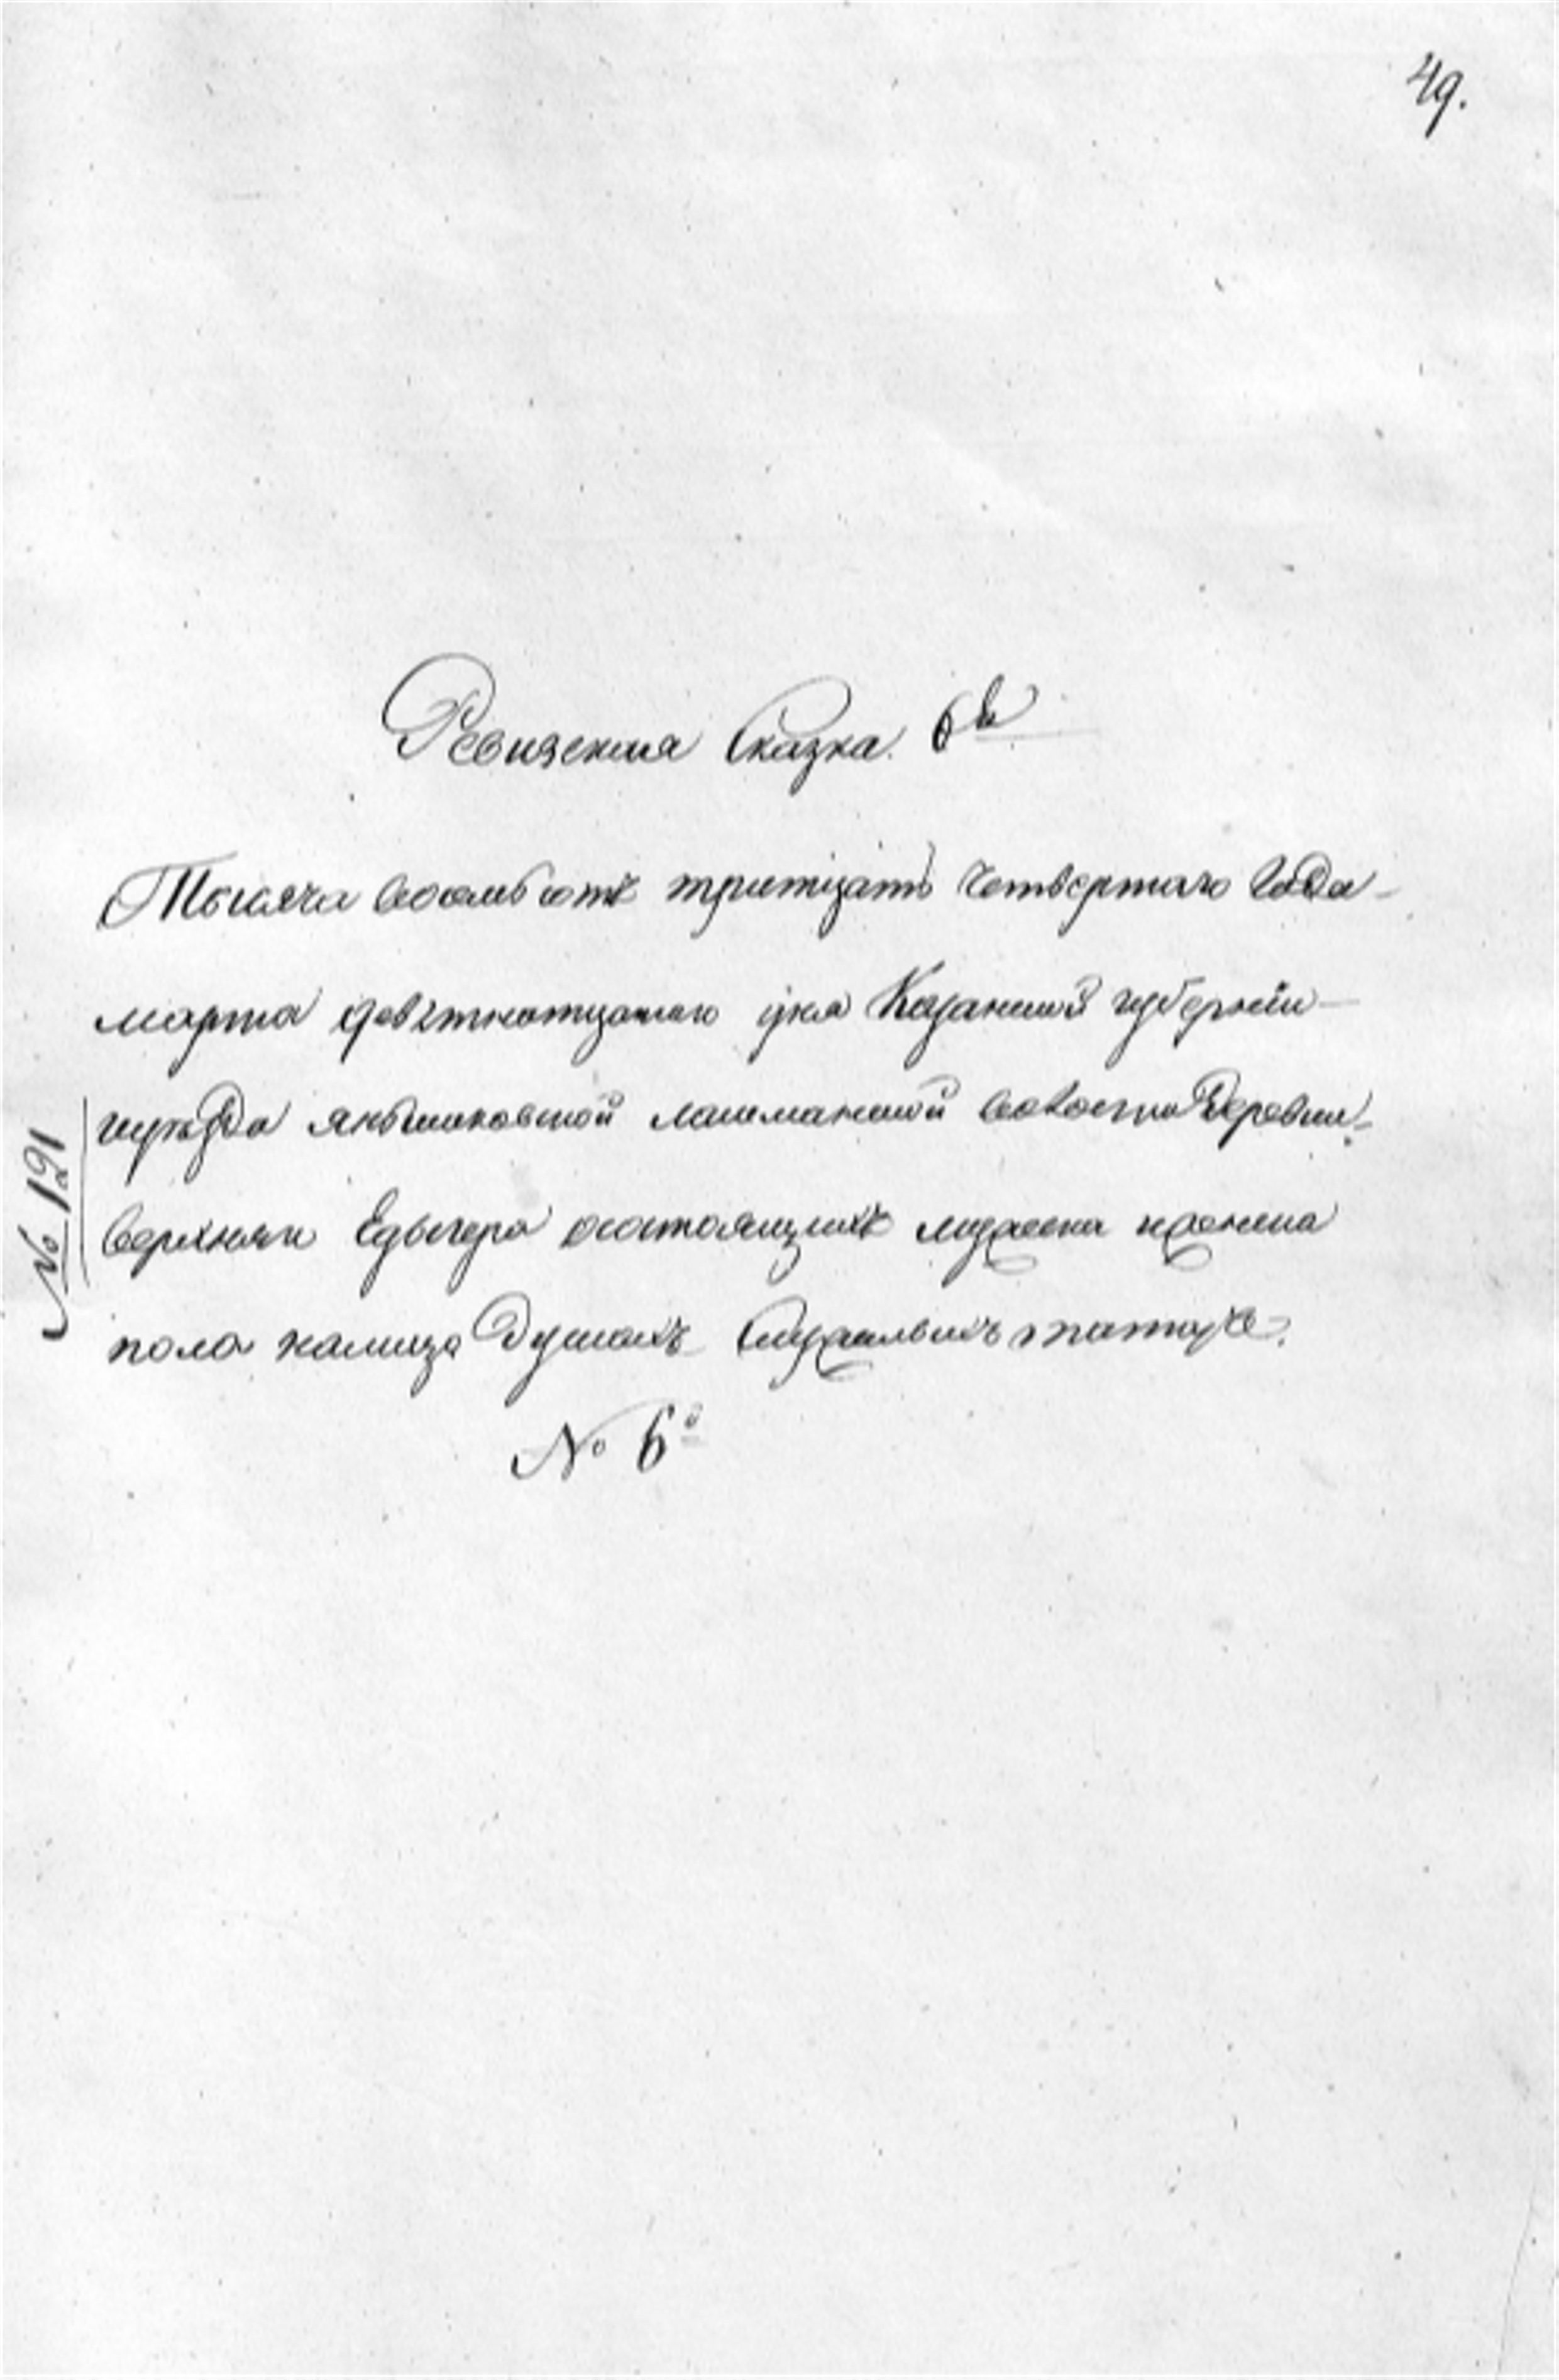 49.
Ревизская Сказка. 6я
Тысяча восемьсотъ тритцать четвертаго Года
марта девятнатцатаго дня Казанской губернии
иуезда янбыковской лашманской волости Деревни
верхняи Едыгера осостоящихъ мужеска иженска
пола налицо Душахъ Служилыхъ татаръ.
№ 6й
№ 121